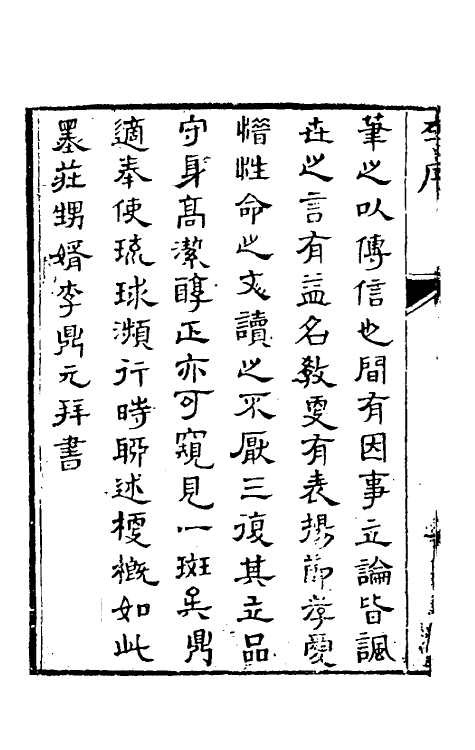 筆之以傳信也間有因事立論皆諷
世之言有益名教更有表揚節孝愛
惜性命之文讀之不厭三復其立品
守身高潔醇正亦可窺見一斑矣鼎
適奉使琉球瀕行時聊述梗概如此
墨莊甥婿李鼎元拜書